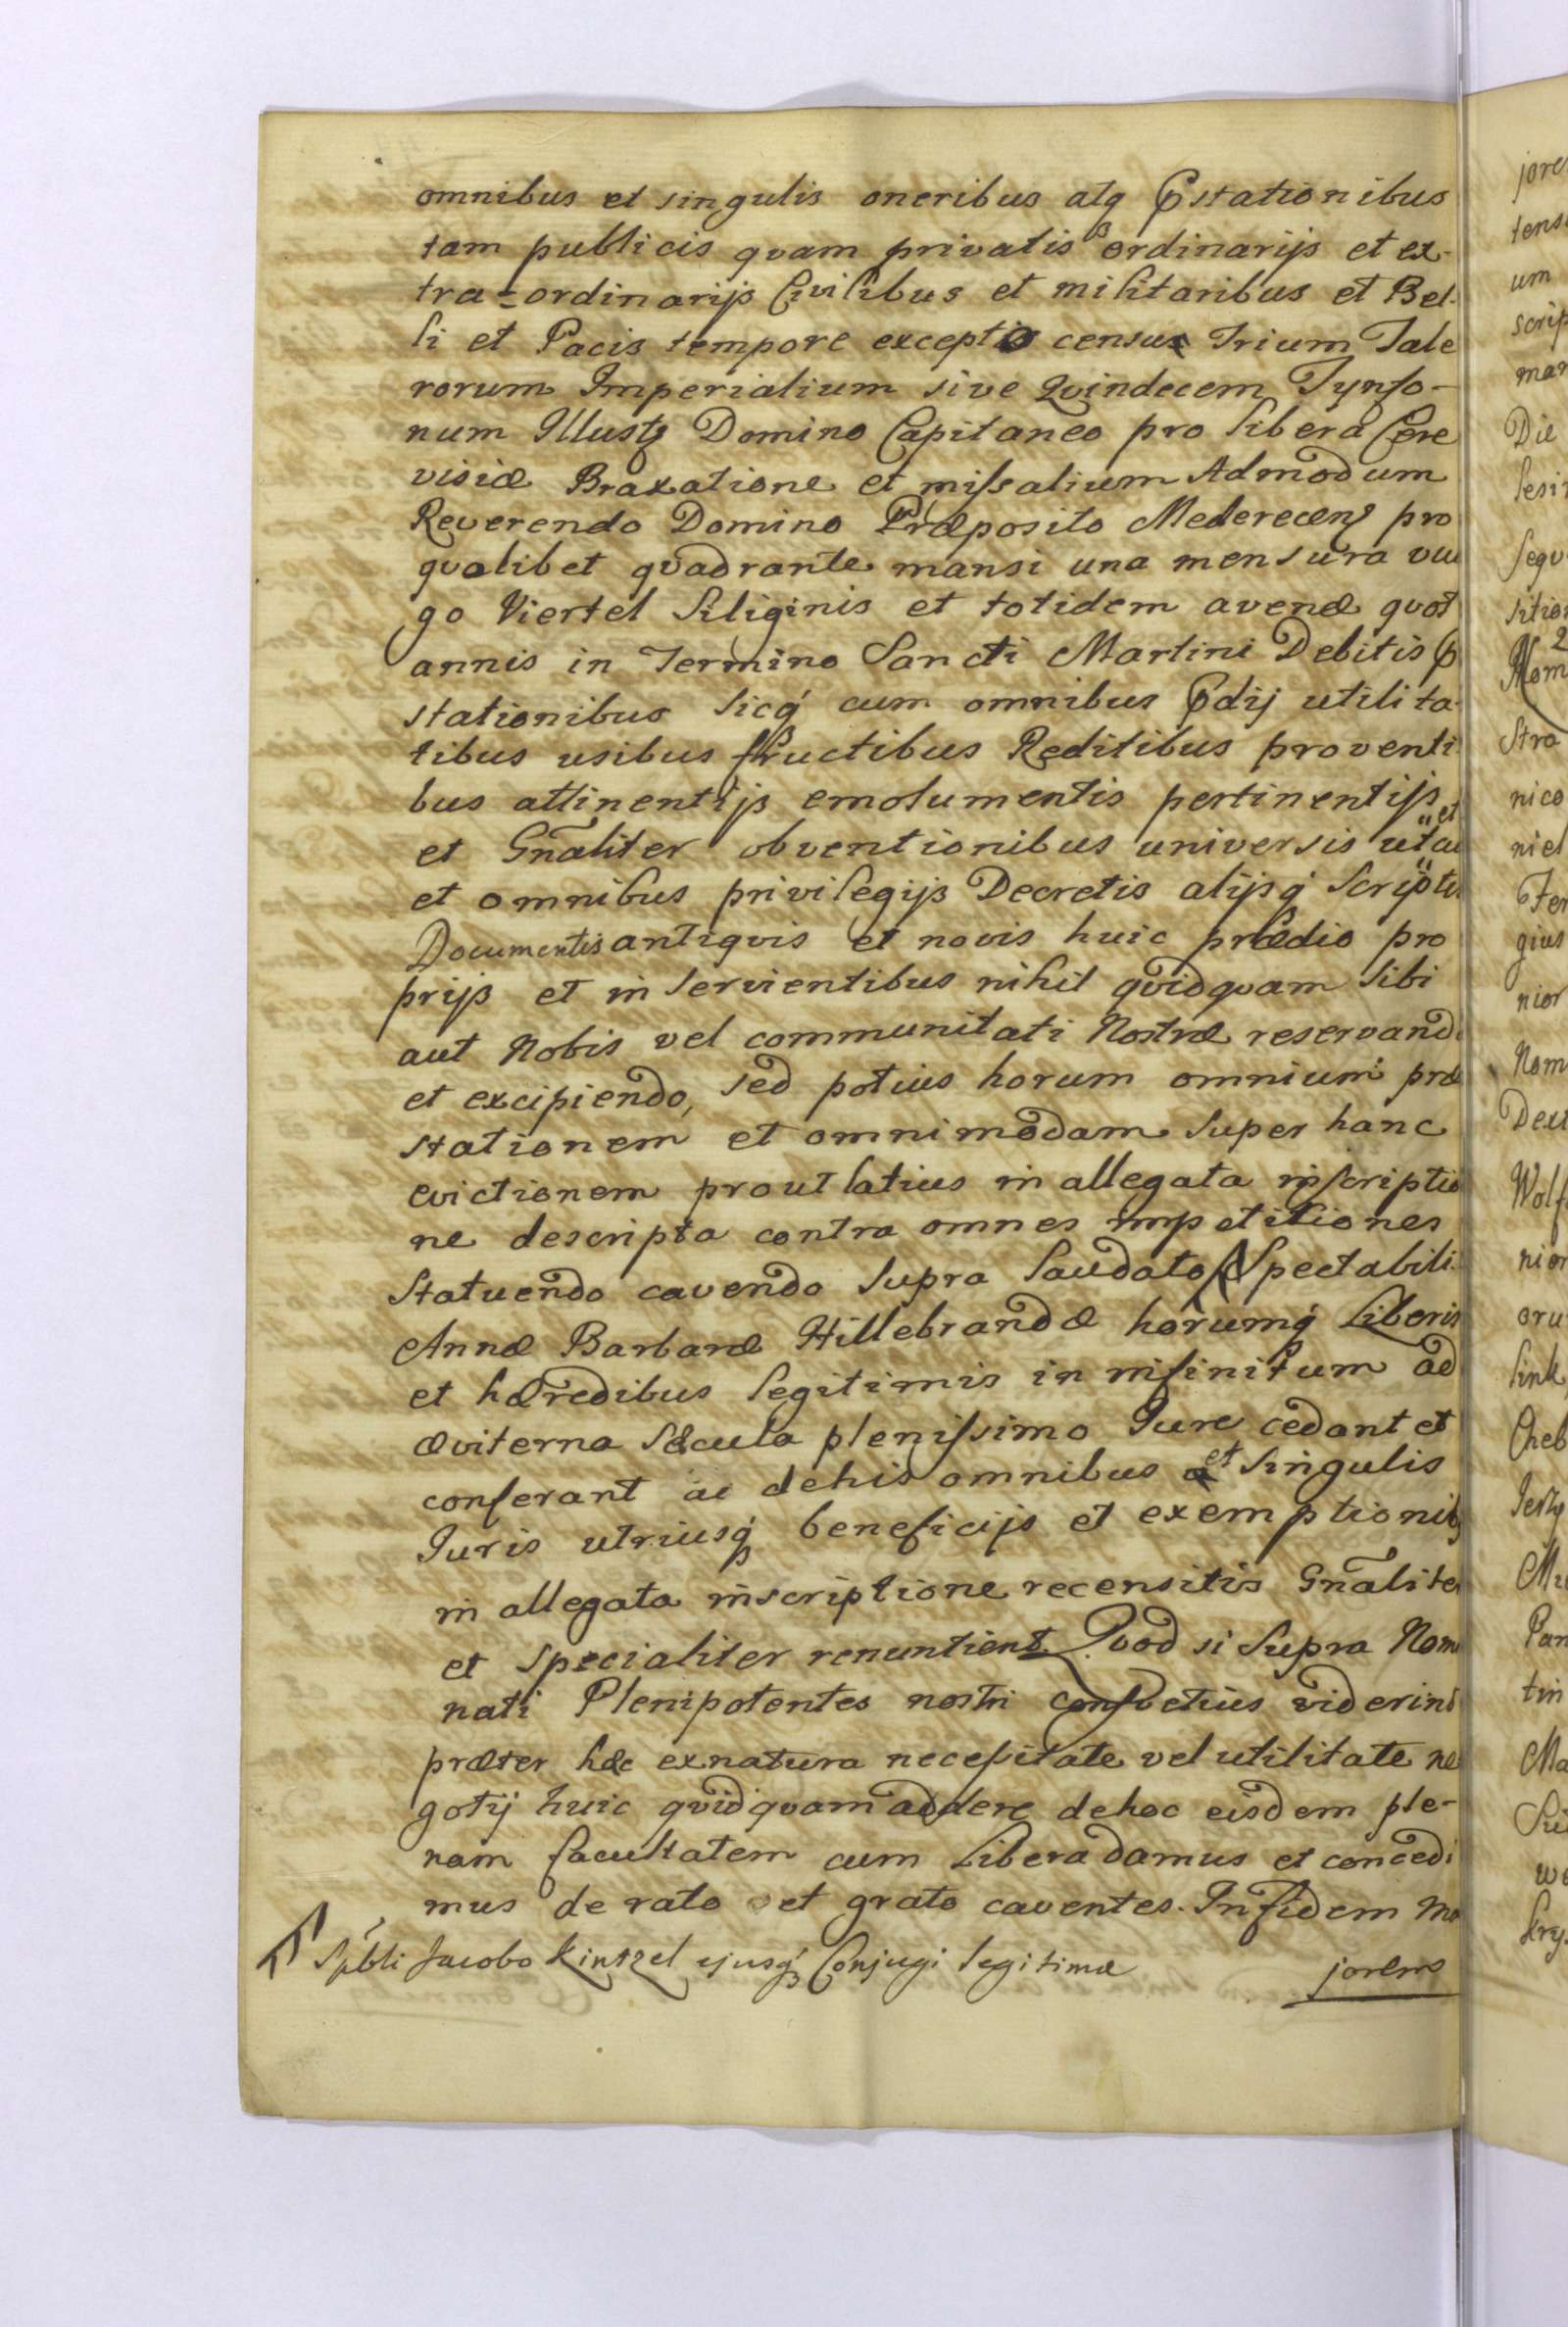 omnibus et singulis oneribus atq Pstationibus
tam publicis quam privatis ordinarijs et ex-
tra-ordinarijs Civilibus et militaribus et Bel-
li et Pacis tempore exceptis censu Trium Tale
rorum Imperialium sive Quindecem Tynfo-
num Illust Domino Capitaneo pro libera Cere
visiæ Braxatione et missalium Admodum
Reverendo Domino Præposito Mederecens pro
qualibet quadrante mansi una mensura vul
go Viertel Siliginis et totidem avenæ quot
annis in Termino Sancti Martini Debitis p
stationibus sicq cum omnibus Pdij utilita-
tibus usibus fructibus Reditibus proventi
bus attinentijs emolumentis pertinentijs
et Gnãliter obventionibus universis ut et
et omnibus privilegijs Decretis alijsq Scriptis
Documentis antiquis et novis huic prædio pro
prijs et inservientibus nihil quidquam sibi
aut Nobis vel communitati Nostræ reservando
et excipiendo, sed potius horum omnium præ
stationem et omnimodam super hanc
evictionem prout latius in allegata inscriptio
ne descripta contra omnes impetitiones
statuendo cavendo supra laudato Spectabili
Annæ Barbaræ Hillebrandæ horumq Liberis
et hæredibus legitimis in infinitum ad
æviterna sæcula plenissimo Jure cedant et
conferant ac de his omnibus et singulis
Juris utriusq beneficijs et exemptionib
in allegata inscriptione recensitis Gnãliter
et specialiter renuntient. Quod si supra Nom
nati Plenipotentes nostri consvetius viderint
præter hæc ex natura necessitate vel utilitate ne
gotij huic quidquam addere de hoc eisdem ple-
nam facultatem cum Libera damus et concedi
mus de rato et grato caventes. In fidem ma
Spbli Jacobo Kintzel ejusq Conjugi legitimæ
jorem
jore
tens
um
scrip
mar
Die
lesi
sequ
sition
Nom
Stra
nico
niel
Fer
gius
nior
Nom
Deu
Wolf
nior
oru
link
Cheb
Jerzy
Mi
Pan
tin
Ma
we
kry